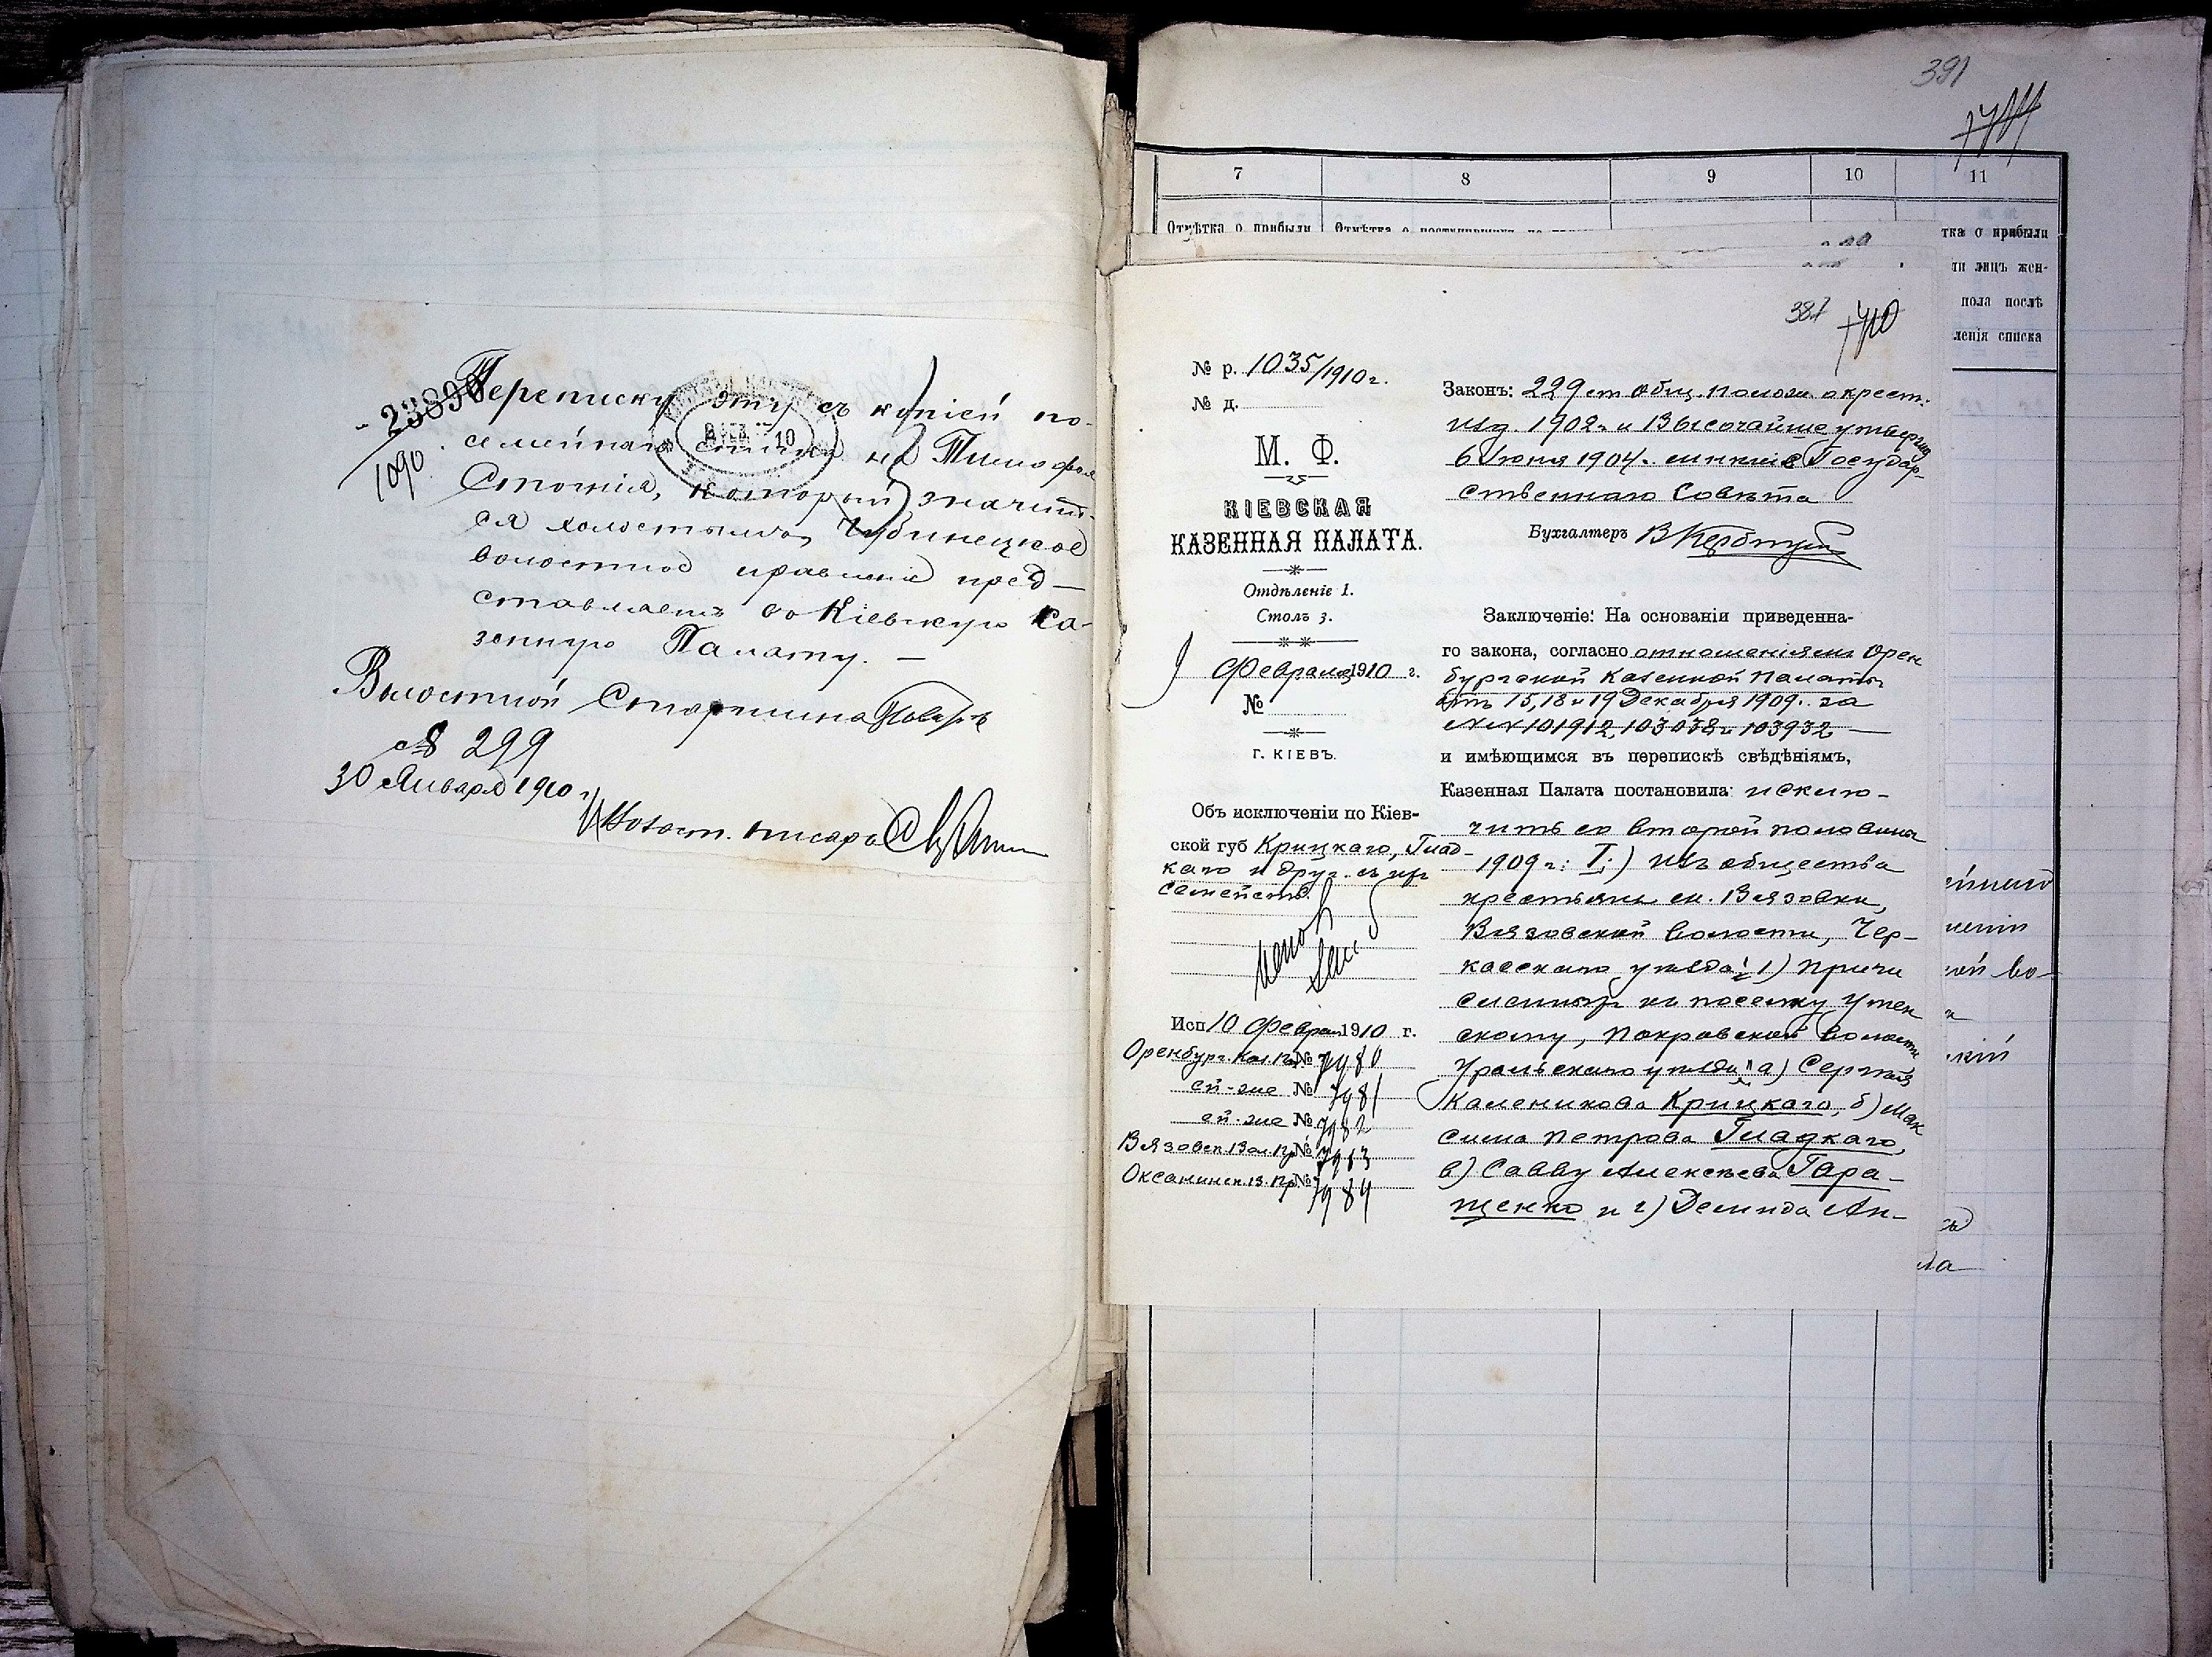 23890
1090
Переписку эту съ копіей по-
семейнаго списка на Тимофея
Стогнія, который значит-
ся холостымъ, Чубинецкое
волостное правленіе пред-
ставляетъ въ Кіевскую Ка-
зенную Палату. —
Волостной Старшина
№ 299
30 Января 1910 г.
Волост. писарь
391
7 8 9 10 11
Отмѣтка о прибыли Отмѣтка о поступившихъ
тка о прибыли
ли лицъ жен-
пола послѣ
ленія списка
387 710
№ р. 1035/1910 г.
№ д.
М. Ф.
КІЕВСКАЯ
КАЗЕННАЯ ПАЛАТА.
Отдѣленіе 1.
Столъ 3.
9 Февраля 1910 г.
№
Г. КІЕВЪ.
Объ исключеніи по Кіев-
ской губ Крицкаго, Глад-
каго и друг. съ ихъ
семейств.
Исп 10 Феврал 1910 г.
Оренбург. Каз. П. № 7980
ей-же № 7981
ей-же № 7982
Вязовск. Вол. Пр. № 7983
Оксанинск. В. Пр. № 7984
Законъ: 229 ст общ. полож. о крест.
изд. 1902 г. и Высочайше утвержд
6 Іюня 1904 г. мнѣніе Государ-
ственнаго Совѣта
Бухгалтеръ
Заключеніе: На основаніи приведенна-
го закона, согласно отношеніямъ Орен
бургской Казенной Палаты
отъ 15, 18 и 19 Декабря 1909 г. за
№№ 101912, 103038 и 103932 —
и имѣющимся въ перепискѣ свѣдѣніямъ,
Казенная Палата постановила: исклю-
чить со второй половины
1909 г: I.) изъ общества
крестьянъ сел. Вязовки,
Вязовской волости, Чер-
касскаго уѣзда: 1) причи
сленныхъ къ поселку
скому, Покровской волости
Уральскаго уѣзда: а) Сергѣя
Каленикова Крицкаго, б) Мак
сима Петрова Гладкаго,
в) Савву Алексѣева Гара-
щенко и г) Демида Ан-